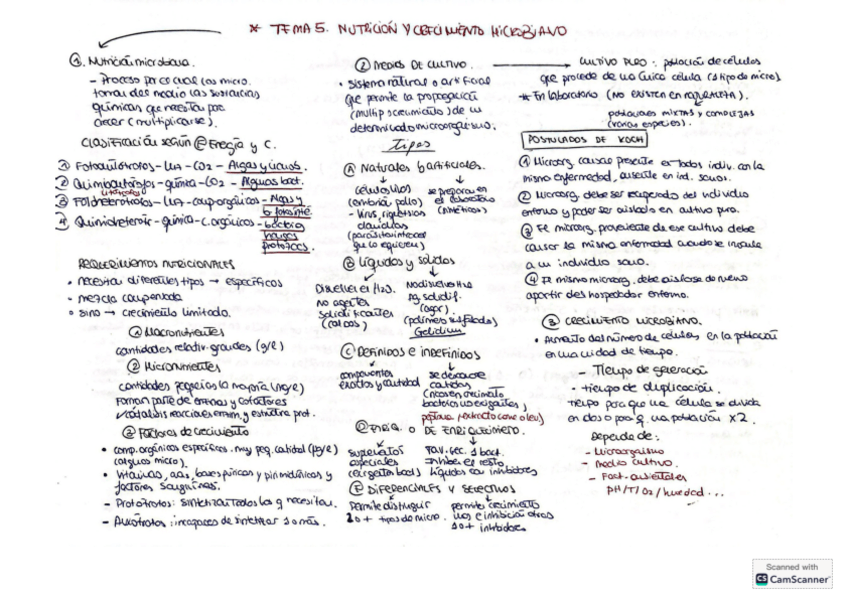 * TEMA 5. NUTRICIÓN Y CRECIMIENTO MICROBIANO
① Nutrición microbiana.
- Proceso por el cual los micro.
toman del medio las sustancias
químicas que necesitan para
crecer (multiplicarse).
Clasificación según Energía y C.
① Fotoautótrofos - luz - CO2 - Algas y cianos.
② Quimioautótrofos - química - CO2 - Algunas bact.
③ Fotoheterótrofos - luz - comp. orgánicos - Algas y
b. fotosinté.
④ Quimioheterotr. - química - C. orgánicos - bacterias
hongos
protozoos.
REQUERIMIENTOS NUTRICIONALES
• necesitan diferentes tipos → específicos
• mezcla compensada
• sino → crecimiento limitado.
① Macronutrientes
cantidades relativ. grandes (g/l)
② Micronutrientes
cantidades pequeñas la mayoría (mg/l)
Forman parte de enzimas y cofactores
③ Factores de crecimiento
• comp. orgánicos específicos. muy peq. cantidad
(algunos micro).
• Vitaminas, aas, bases púricas y pirimidínicas y
factores sanguíneos.
- Prototrofos: sintetizan todos los q necesitan.
- Auxótrofos: incapaces de sintetizar 1 o más.
② MEDIOS DE CULTIVO.
• Sistema natural o artificial
que permite la propagación
(multip y crecimiento) de un
determinado microorganismo.
Tipos
Ⓐ Naturales y artificiales.
células vivas
(embrión pollo)
- Virus, rickettsias
clamidias
(parásitos intracel
que lo requieren)
se preparan en
el laboratorio
(sintéticos)
Ⓑ Líquidos y sólidos
Disuelven el H2O.
no agentes
solidificantes
(caldos)
Ag. solidif.
(agar)
(polímero sulfatado)
Gelidium
Ⓒ Definidos e indefinidos
componentes
exactos y cantidad
se desconoce
cantidades
peptona, extracto carne o lev)
Ⓓ ENRIQ. o DE ENRIQUECIMIENTO.
suplementos
especiales
Fav. crec. 1 bact.
Inhiben el resto
Líquidos con inhibidores
Ⓔ DIFERENCIALES Y SELECTIVOS
Permite distinguir
2 o + tipos de micro.
permite crecimiento
unos e inhibición otros
1 o + inhibidores
CULTIVO PURO: población de células
que procede de una única célula (1 tipo de micro).
* En laboratorio (NO EXISTEN EN NATURALEZA).
poblaciones MIXTAS y COMPLEJAS
(varias especies).
POSTULADOS DE KOCH
① Microorg. causal presente en todos indiv. con la
misma enfermedad, ausente en ind. sanos.
② Microorg. debe ser recuperado del individuo
enfermo y poder ser aislado en cultivo puro.
③ El microorg. proveniente de ese cultivo debe
causar la misma enfermedad cuando se inocula
a un individuo sano.
④ El mismo microorg. debe aislarse de nuevo
a partir del hospedador enfermo.
③ CRECIMIENTO MICROBIANO.
• Aumento del número de células en la población
en una unidad de tiempo.
- Tiempo de generación
- tiempo de duplicación.
tiempo para que una célula se divida
en dos o para q una población x2.
Depende de:
- Microorganismo
- medio cultivo
- Fact. ambientales
pH/Tª/O2/humedad...
Scanned with
CS CamScanner